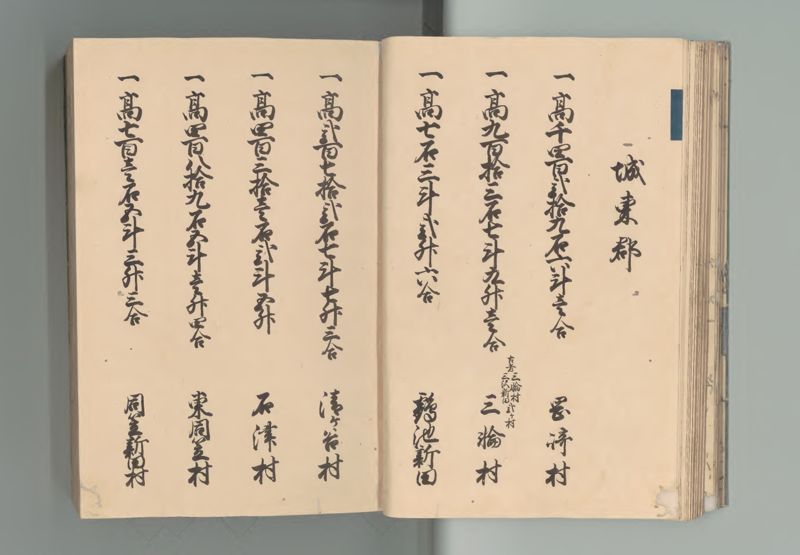 一城東郡
一高千四百弐拾九石六斗壱合 岡崎村
一高九百拾三石七斗九升壱合 三輪村
一高七石三斗弐升六合 鶴池新田
一高弐百七拾弐石七斗七升三合 清ヶ谷村
一高四百三拾壱石弐斗五升 石津村
一高四百八拾九石五斗壱升四合 東同笠村
一高七百壱石五斗三升三合 同笠新田村